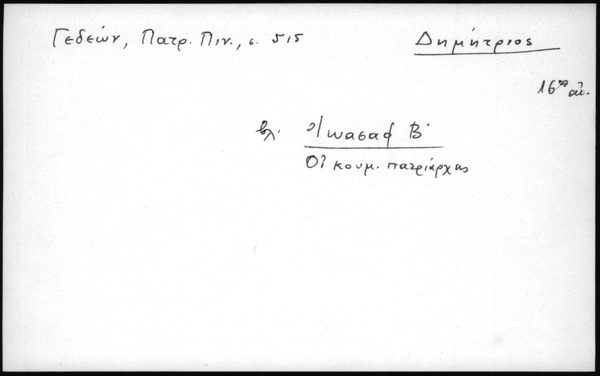 Γεδεών, Πατρ. Πιν., σ. 515
Δημήτριος
16ος αἰ.
βλ. Ἰωασαφ Β΄
Οἰκουμ. πατριάρχης